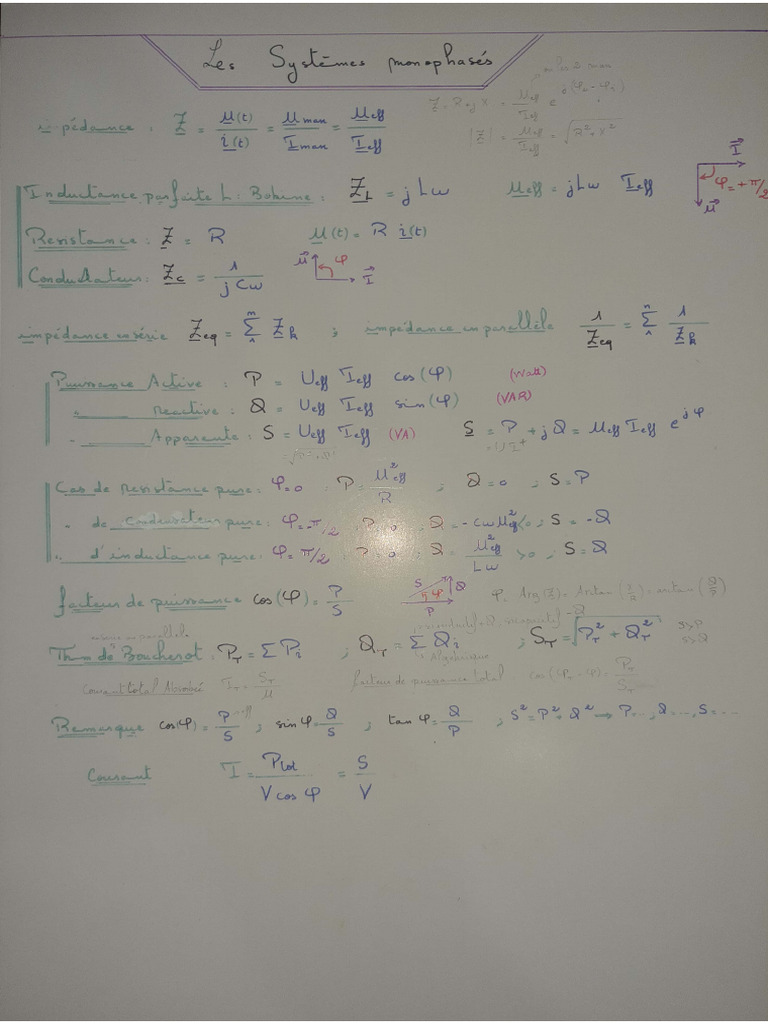 Les Systèmes monophasés
impédance : Z = u(t) / i(t) = Umax / Imax = Ueff / Ieff
Z = R + j X = Ueff / Ieff e^j(φu - φi)
|Z| = Ueff / Ieff = √(R² + X²)
Inductance parfaite L : Bobine : Z_L = j Lω    Ueff = jLω Ieff    I φ = + π/2 u
Resistance : Z = R    u(t) = R i(t)
Condensateur : Zc = 1 / jCω    u φ I
impédance en série Zeq = Σ Zk ; impédance en parallèle 1 / Zeq = Σ 1 / Zk
Puissance Active : P = Ueff Ieff cos(φ) (Watt)
Reactive : Q = Ueff Ieff sin(φ) (VAR)
Apparente : S = Ueff Ieff (VA)    S = P + jQ = Ueff Ieff e^jφ
Cas de resistance pure : φ = 0 : P = U²eff / R ; Q = 0 ; S = P
" de condensateur pure : φ = - π/2 P = 0 ; Q = - CωU²eff < 0 ; S = -Q
" d'inductance pure : φ = π/2 P = 0 ; Q = U²eff / Lω > 0 ; S = Q
facteur de puissance cos(φ) = P / S    S φ Q P    φ = Arg(Z) = Arctan (X/R) = arctan (Q/P)
Thm de Boucherot : P_T = Σ Pi ; Q_T = Σ Qi ; S_T = √(P_T² + Q_T²)
Algébrique
Courant total Absorbé I_T = S_T / U    facteur de puissance total cos(φ_T) = P_T / S_T
Remarque cos(φ) = P / S ; sin φ = Q / S ; tan φ = Q / P ; S² = P² + Q² → P = ..., Q = ..., S = ...
Courant I = Ptot / V cos φ = S / V